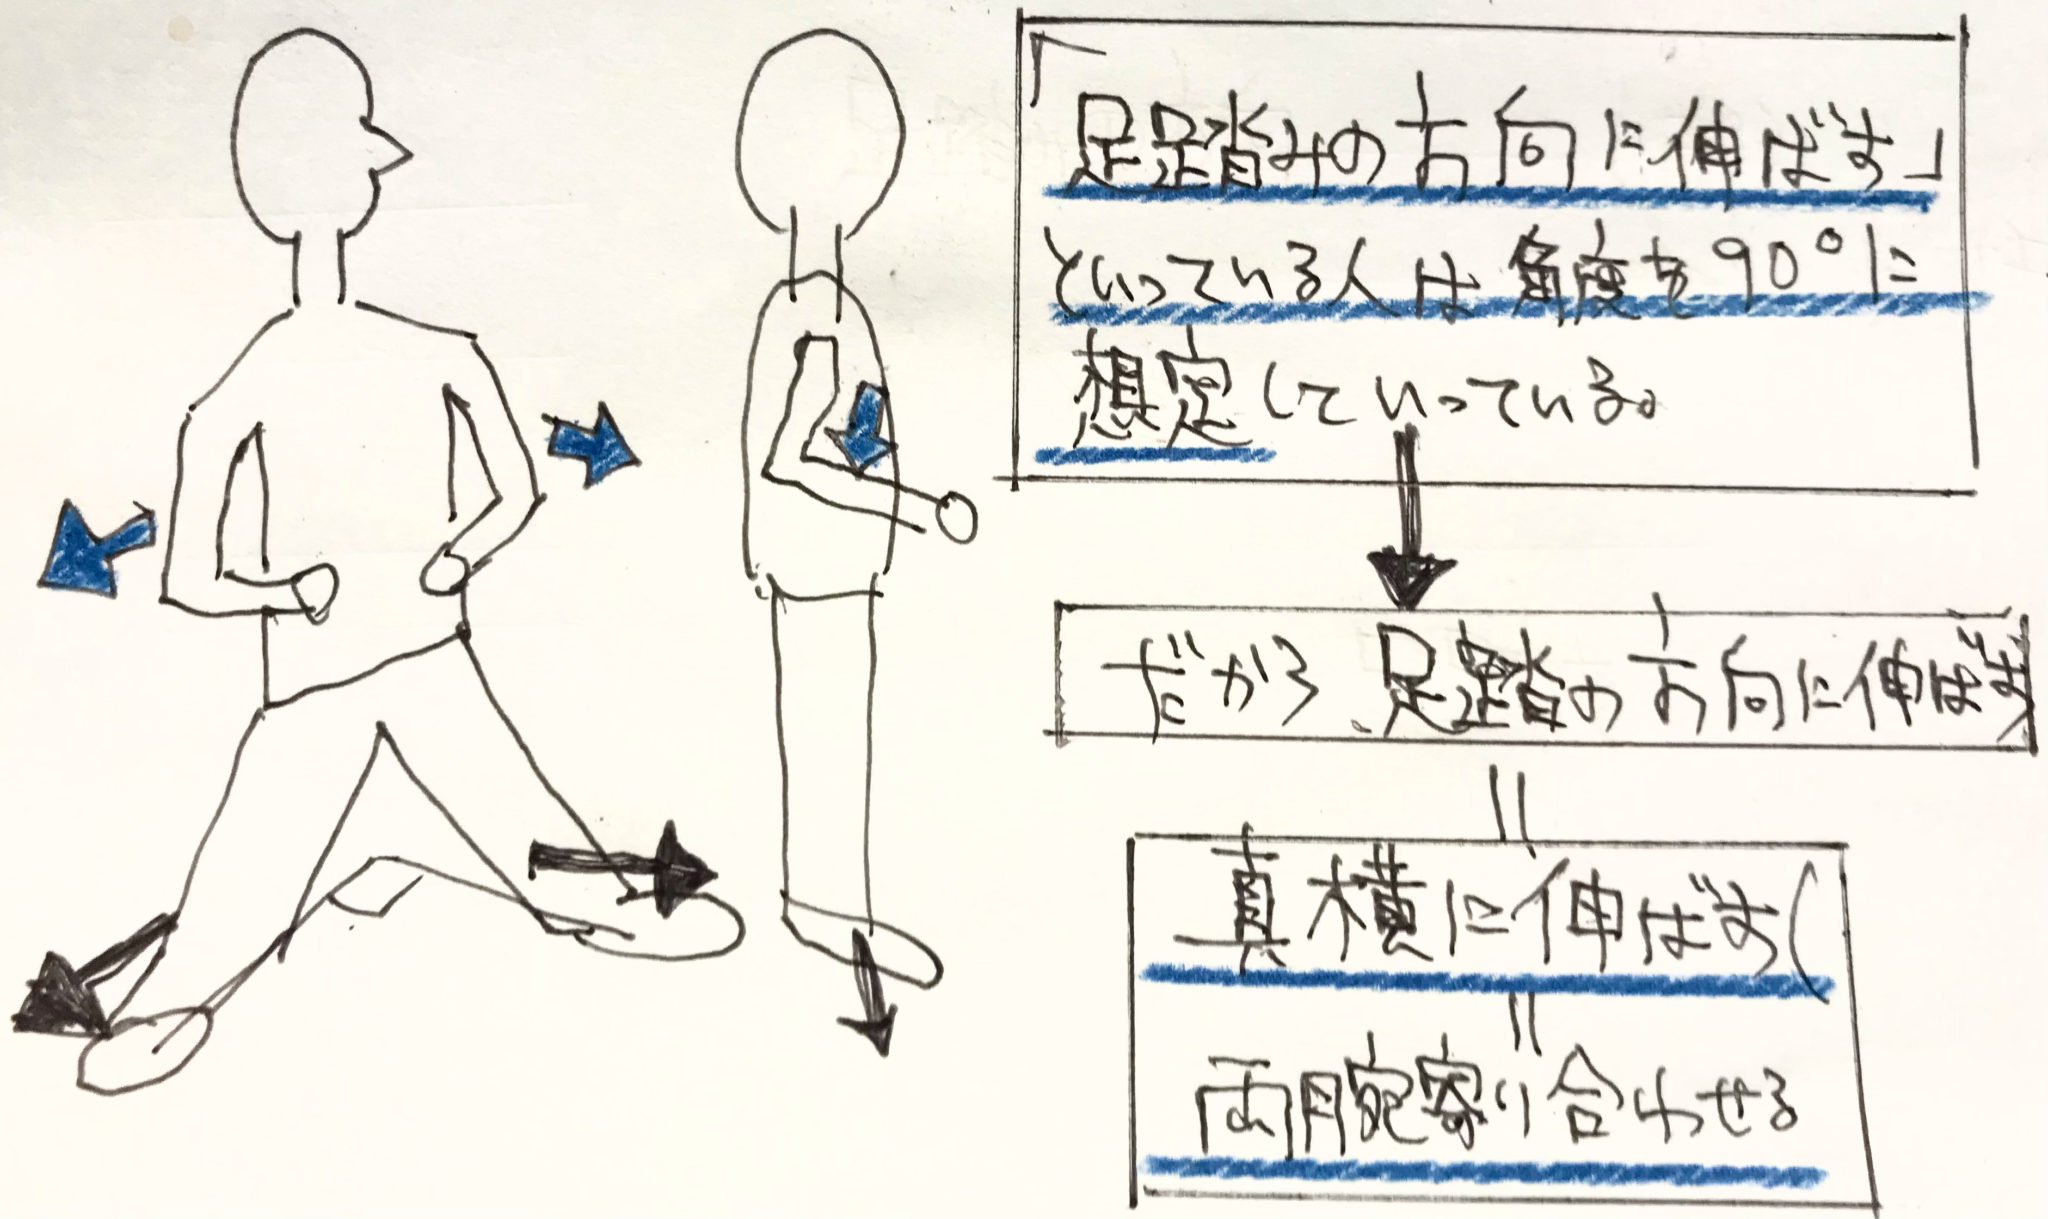 「足踏みの方向に伸ばす」
といっている人は角度を90°に
想定していっている。
だから、足踏の方向に伸ばす
=
真横に伸ばす(
=
両腕寄り合わせる